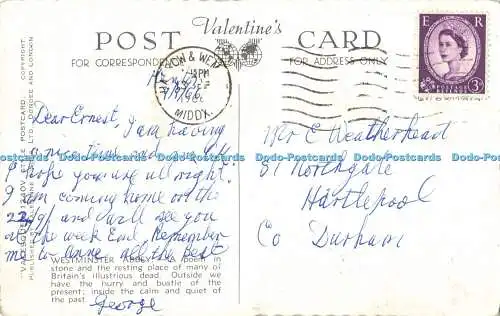 Valentine's
POST CARD
FOR CORRESPONDENCE FOR ADDRESS ONLY
E R
POSTAGE REVENUE
3D
PM
SEP
196
MIDDX.
Dear Ernest, I am having
a nice time and
I hope you are all right.
I am coming home on the
22/9/ and will see you
at the week End, Remember
me to Anne all the best
George
WESTMINSTER ABBEY—"A poem in
stone and the resting place of many of
Britain's illustrious dead. Outside we
have the hurry and bustle of the
present; inside the calm and quiet of
the past."
Mr E Weatherhead
51 Northgate
Hartlepool
Co Durham
COPYRIGHT.
DUNDEE AND LONDON
Dodo-Postcards Dodo-Postcards Dodo-Postcards Dodo-Postcards Dodo-Postcards